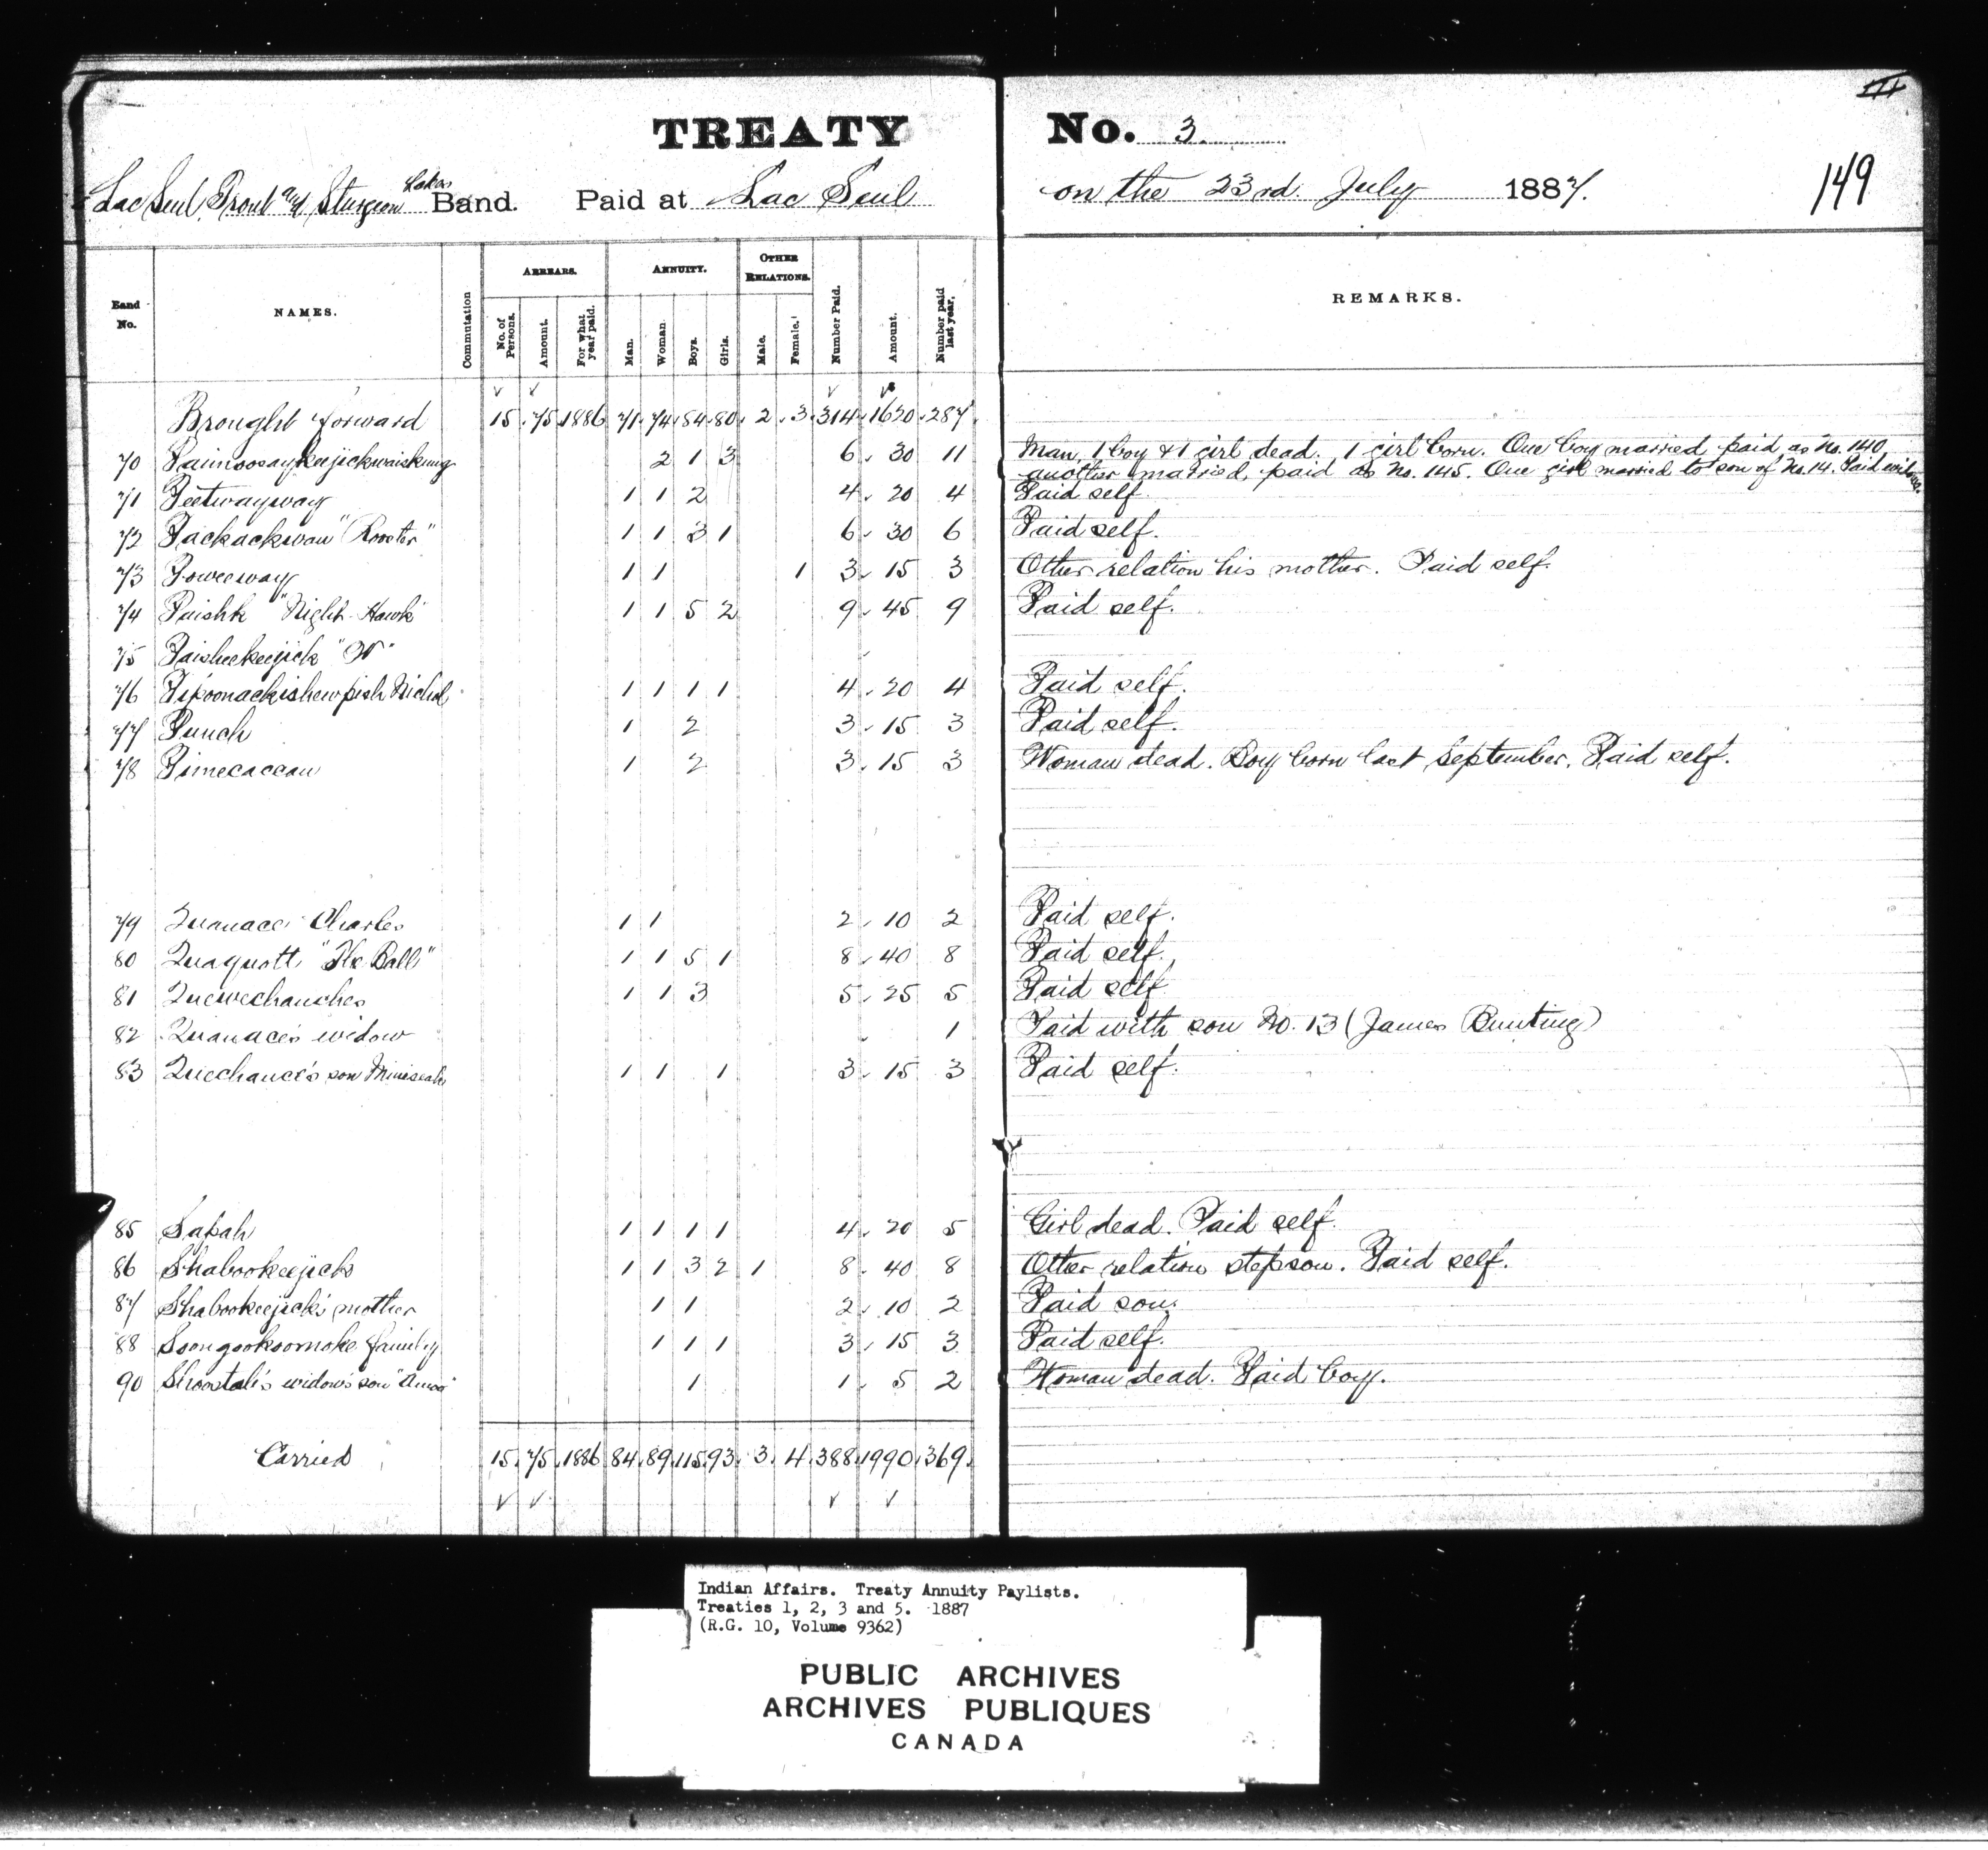 TREATY No. 3.
149
Lac Seul, Trout and Sturgeon Lakes Band. Paid at Lac Seul on the 23rd July 1887.
Band No. NAMES. Commutation ARREARS. ANNUITY. OTHER RELATIONS. Number Paid. Amount. Number paid last year. REMARKS.
No. of Persons. Amount. For what year paid. Man. Woman Boys. Girls. Male. Female.
Brought forward 15 75 1886 71 74 84 80 2 3 314 1630 287
70 Paimoosaykeejickwaiskung 2 1 3 6 30 11 Man, 1 boy & 1 girl dead. 1 girl born. One boy married, paid as No. 140,
another married, paid as No. 145. One girl married to son of No. 14. Paid widow.
71 Peetwayway 1 1 2 4 20 4 Paid self.
72 Packackwan "Rooster" 1 1 3 1 6 30 6 Paid self.
73 Poweeway 1 1 1 3 15 3 Other relation his mother. Paid self.
74 Paishk "Night Hawk" 1 1 5 2 9 45 9 Paid self.
75 Paisheekeejick
76 Pipoonackishewpish Nichol 1 1 1 1 4 20 4 Paid self.
77 Punch 1 2 3 15 3 Paid self.
78 Pimecaccan 1 2 3 15 3 Woman dead. Boy born last September. Paid self.
79 Quanace Charles 1 1 2 10 2 Paid self.
80 Quaquott "The Ball" 1 1 5 1 8 40 8 Paid self.
81 Quewechanches 1 1 3 5 25 5 Paid self
82 Quanace's widow 1 Paid with son No. 13 (James Bunting)
83 Quechance's son 1 1 1 3 15 3 Paid self.
85 Sapah 1 1 1 1 4 20 5 Girl dead. Paid self.
86 Shabookeejick 1 1 3 2 1 8 40 8 Other relation stepson. Paid self.
87 Shabookeejick's mother 1 1 2 10 2 Paid son.
88 Soongookoomoke family 1 1 1 3 15 3 Paid self.
90 widow's son 1 1 5 2 Woman dead. Paid boy.
Carried 15 75 1886 84 89 115 93 3 4 388 1990 369
Indian Affairs. Treaty Annuity Paylists.
Treaties 1, 2, 3 and 5. 1887
(R.G. 10, Volume 9362)
PUBLIC ARCHIVES
ARCHIVES PUBLIQUES
CANADA